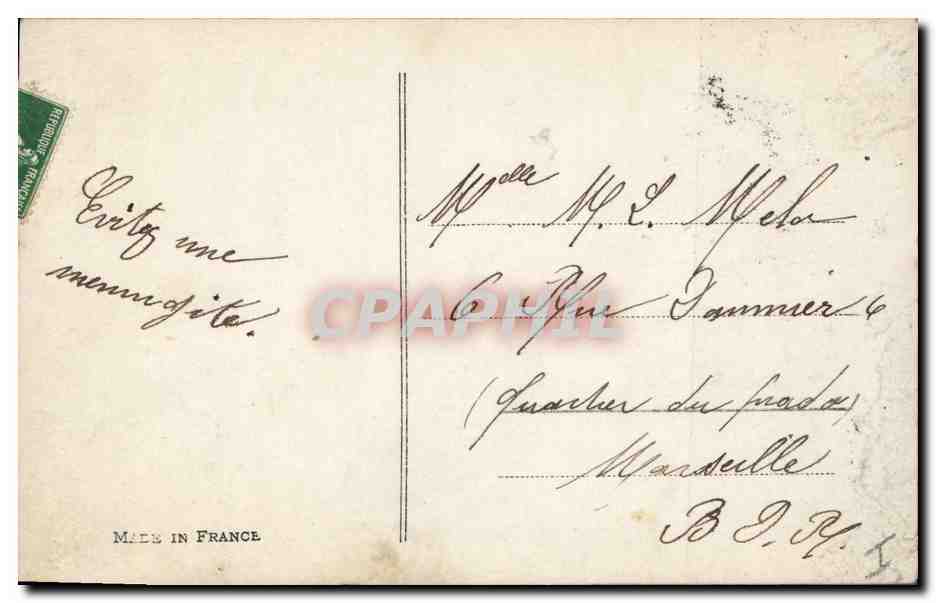 REPUBLIQUE FRANCAI
Evitez une
meningite.
Melle M. L. Mela
6 Rue Daumier 6
(Quartier du Prado)
Marseille
B. D. R.
CPAPHIL
MADE IN FRANCE
I